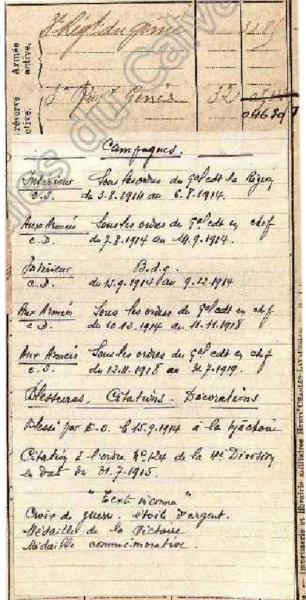 Armée
active.
3e Régt du Génie
réserve
ctive.
3e Génie
Campagnes.
Intérieur Sous les ordres du Gal cdt la Région
C.S. du 3.8.1914 au 6.8.1914.
Aux Armées Sous les ordres du Gal cdt en chef
C.D. du 7.8.1914 au 14.9.1914.
Intérieur B.d.g.
C.D. du 15.9.1914 au 9.12.1914
Aux Armées Sous les ordres du Gal cdt en chef
C.D. du 10.12.1914 au 11.11.1918
Aux Armées Sous les ordres du Gal cdt en chef
C.S. du 12.11.1918 au 31.7.1919.
Blessures, Citations - Décorations
Blessé par E.O. le 15.9.1914 à la Mâchoire
Citation à l'ordre No 124 de la 4e Division
en date du 31.7.1915.
"Texte inconnu"
Croix de guerre. étoile d'argent.
Médaille de la Victoire
Médaille commémorative.
Imprimerie et Librairie militaires Henri CHARLES-LAVAUZELLE